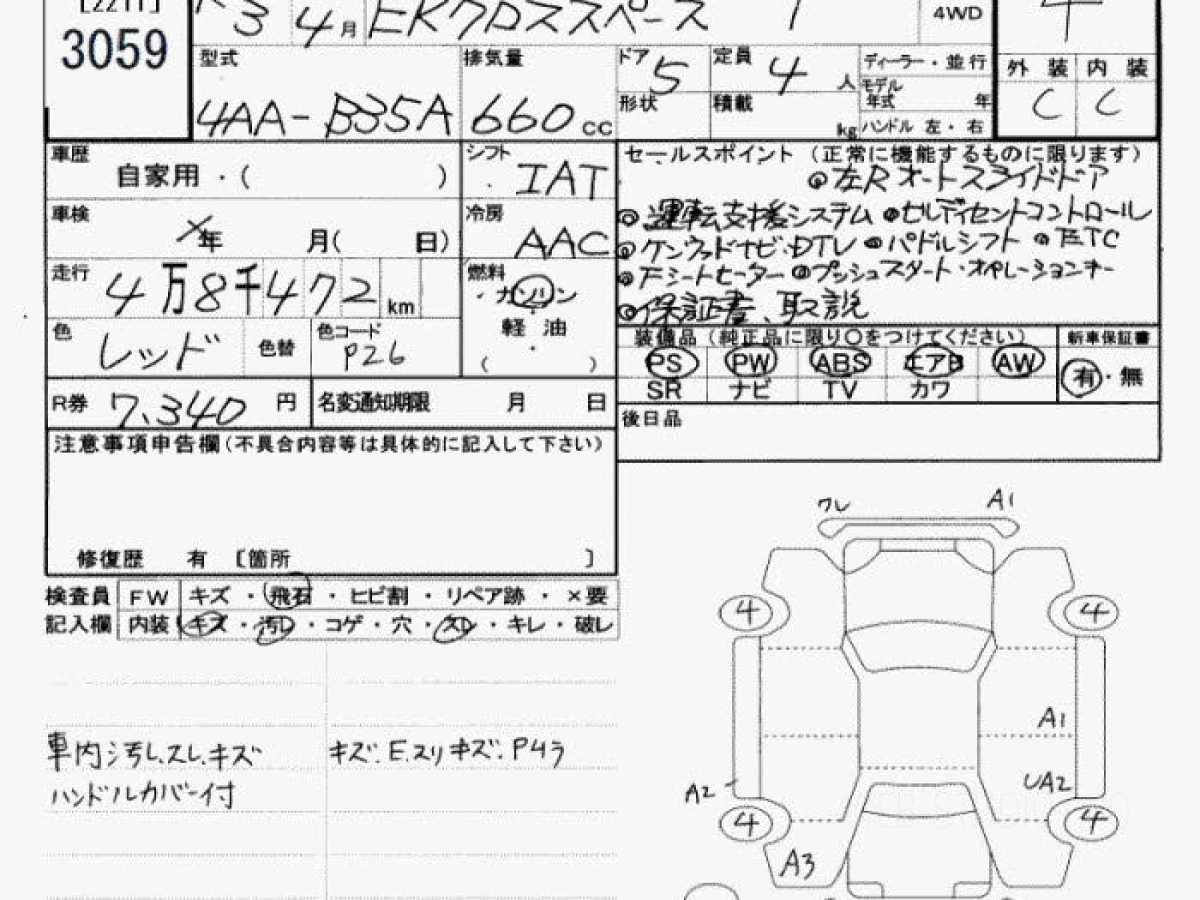 [2211]
3059
3 4月 EKクロススペース
4WD
4
型式 4AA-B35A
排気量 660cc
ドア 5
定員 4人
形状
積載 kg
ディーラー・並行
モデル年式 年
ハンドル 左・右
外装 内装
C C
車歴 自家用・( )
シフト IAT
車検 ×年 月( 日)
冷房 AAC
走行 4万8千472km
燃料 ガソリン
軽油
( )
色 レッド 色替
色コード P26
R券 7,340円
名変通知期限 月 日
セールスポイント (正常に機能するものに限ります)
◎左Rオートスライドドア
◎運転支援システム ◎ヒルディセントコントロール
◎ケンウッドナビ・DTV ◎パドルシフト ◎ETC
◎Fシートヒーター ◎プッシュスタート・オペレーションキー
◎保証書、取説
装備品(純正品に限り○をつけてください)
新車保証書
PS PW ABS エアB AW
有・無
SR ナビ TV カワ
後日品
注意事項申告欄(不具合内容等は具体的に記入して下さい)
修復歴 有 〔箇所 〕
検査員 FW キズ・飛石・ヒビ割・リペア跡・×要
記入欄 内装 キズ・汚レ・コゲ・穴・スレ・キレ・破レ
車内汚し、スレ、キズ
キズ、E、スリキズ、P4ヶ
ハンドルカバー付
ワレ A1
4 4
A1
A2 UA2
4 4
A3